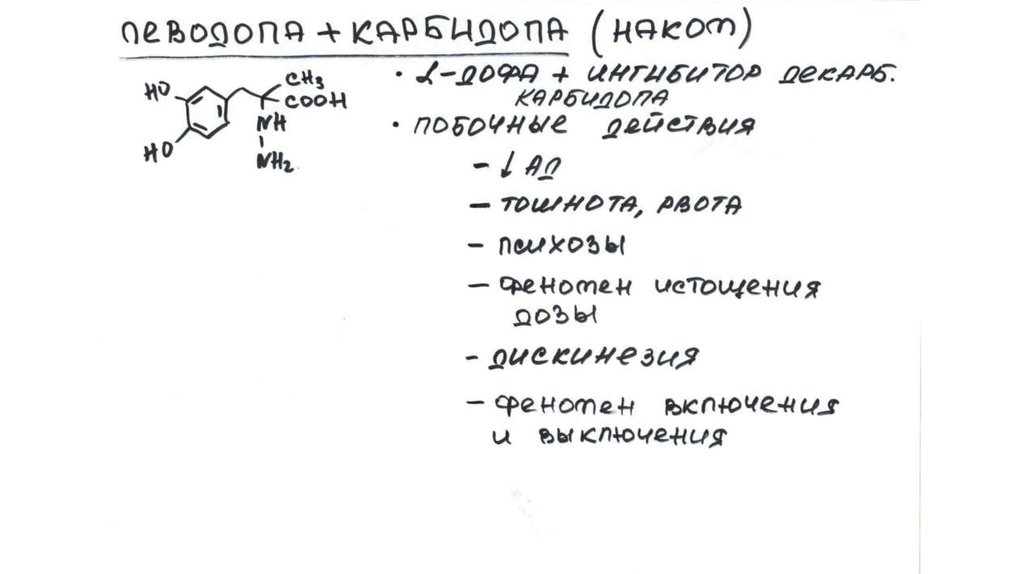 ЛЕВОДОПА + КАРБИДОПА (НАКОМ)
HO
CH3
COOH
NH
HO
NH2
• L-ДОФА + ИНГИБИТОР ДЕКАРБ.
КАРБИДОПА
• ПОБОЧНЫЕ ДЕЙСТВИЯ
- ↓ АД
- ТОШНОТА, РВОТА
- ПСИХОЗЫ
- ФЕНОМЕН ИСТОЩЕНИЯ
ДОЗЫ
- ДИСКИНЕЗИЯ
- ФЕНОМЕН ВКЛЮЧЕНИЯ
И ВЫКЛЮЧЕНИЯ